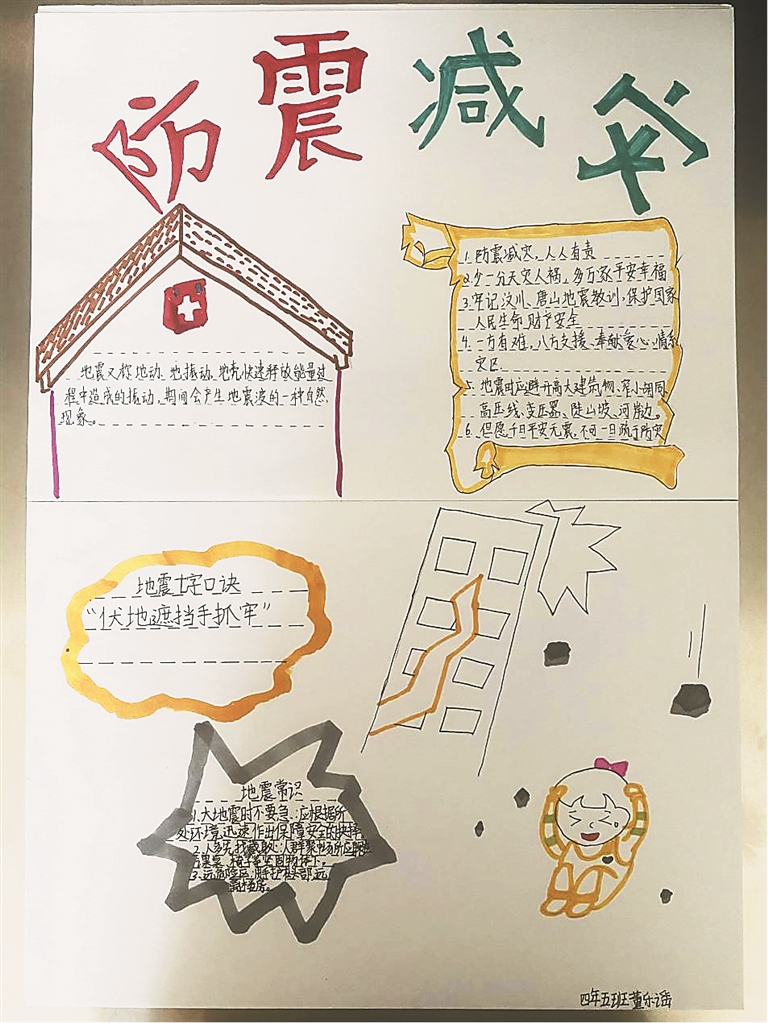 防震减灾
地震又称地动、地振动,地壳快速释放能量过
程中造成的振动,期间会产生地震波的一种自然
现象。
1. 防震减灾,人人有责
2.少一分天灾人祸,多万逐平安幸福
3.牢记汶川、唐山地震教训,保护国家
人民生命财产安全
4. 一方有难,八方支援、奉献爱心,情系
灾区.
5. 地震时应避开高大建筑物、窄小胡同
高压线、变压器、陡山坡、河岸边。
6. 但愿千日平安无震,不可一日疏于防灾
地震七字口诀
“伏地遮挡手抓牢”
地震常识
1.大地震时不要急,:应根据所
处环境,迅速作出保障安全的抉择
2.人多先找藏身处:人群聚
3.远危险区
四年五班董乐谣